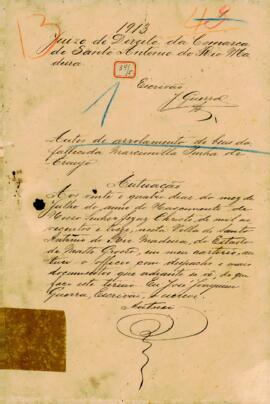 1913
Juizo de Direito da Comarca
de Santo Antonio do Rio Ma
deira
Escrivão
J. Guerra
Autos de arrolamento de bens da
fallecida Marcimilla Senha de
Araujo
Autuação
Aos vinte e quatro dias do mez de
Julho do anno do Nascimento de
Nosso Senhor Jezus Christo, de mil no
vecentos e treze, nesta Villa de Santo
Antonio do Rio Madeira, do Estado
de Matto Grosso, em meu cartorio, au
tuei o officio com despacho e mais
documentos que adiante se vê, do que
faço este termo. Eu José Joaquim
Guerra, Escrivão, o escrevi.
Autuei